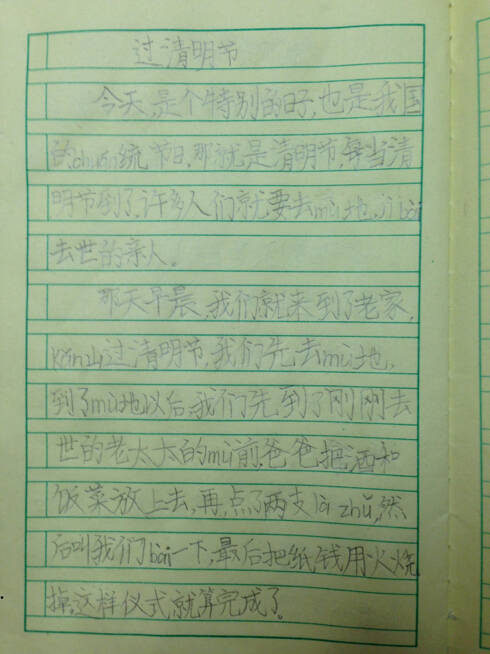 过清明节
今天,是个特别的日子,也是我国
的chuán统节日,那就是清明节,每当清
明节到了,许多人们就要去mù地,jì bài
去世的亲人。
那天早晨,我们就来到了老家,
kūn山过清明节,我们先去mù地,
到了mù地以后,我们先到了刚刚去
世的老太太的mù前,爸爸把酒和
饭菜放上去,再点了两支là zhú,然
后叫我们bài一下,最后把纸钱用火烧
掉,这样仪式就算完成了。